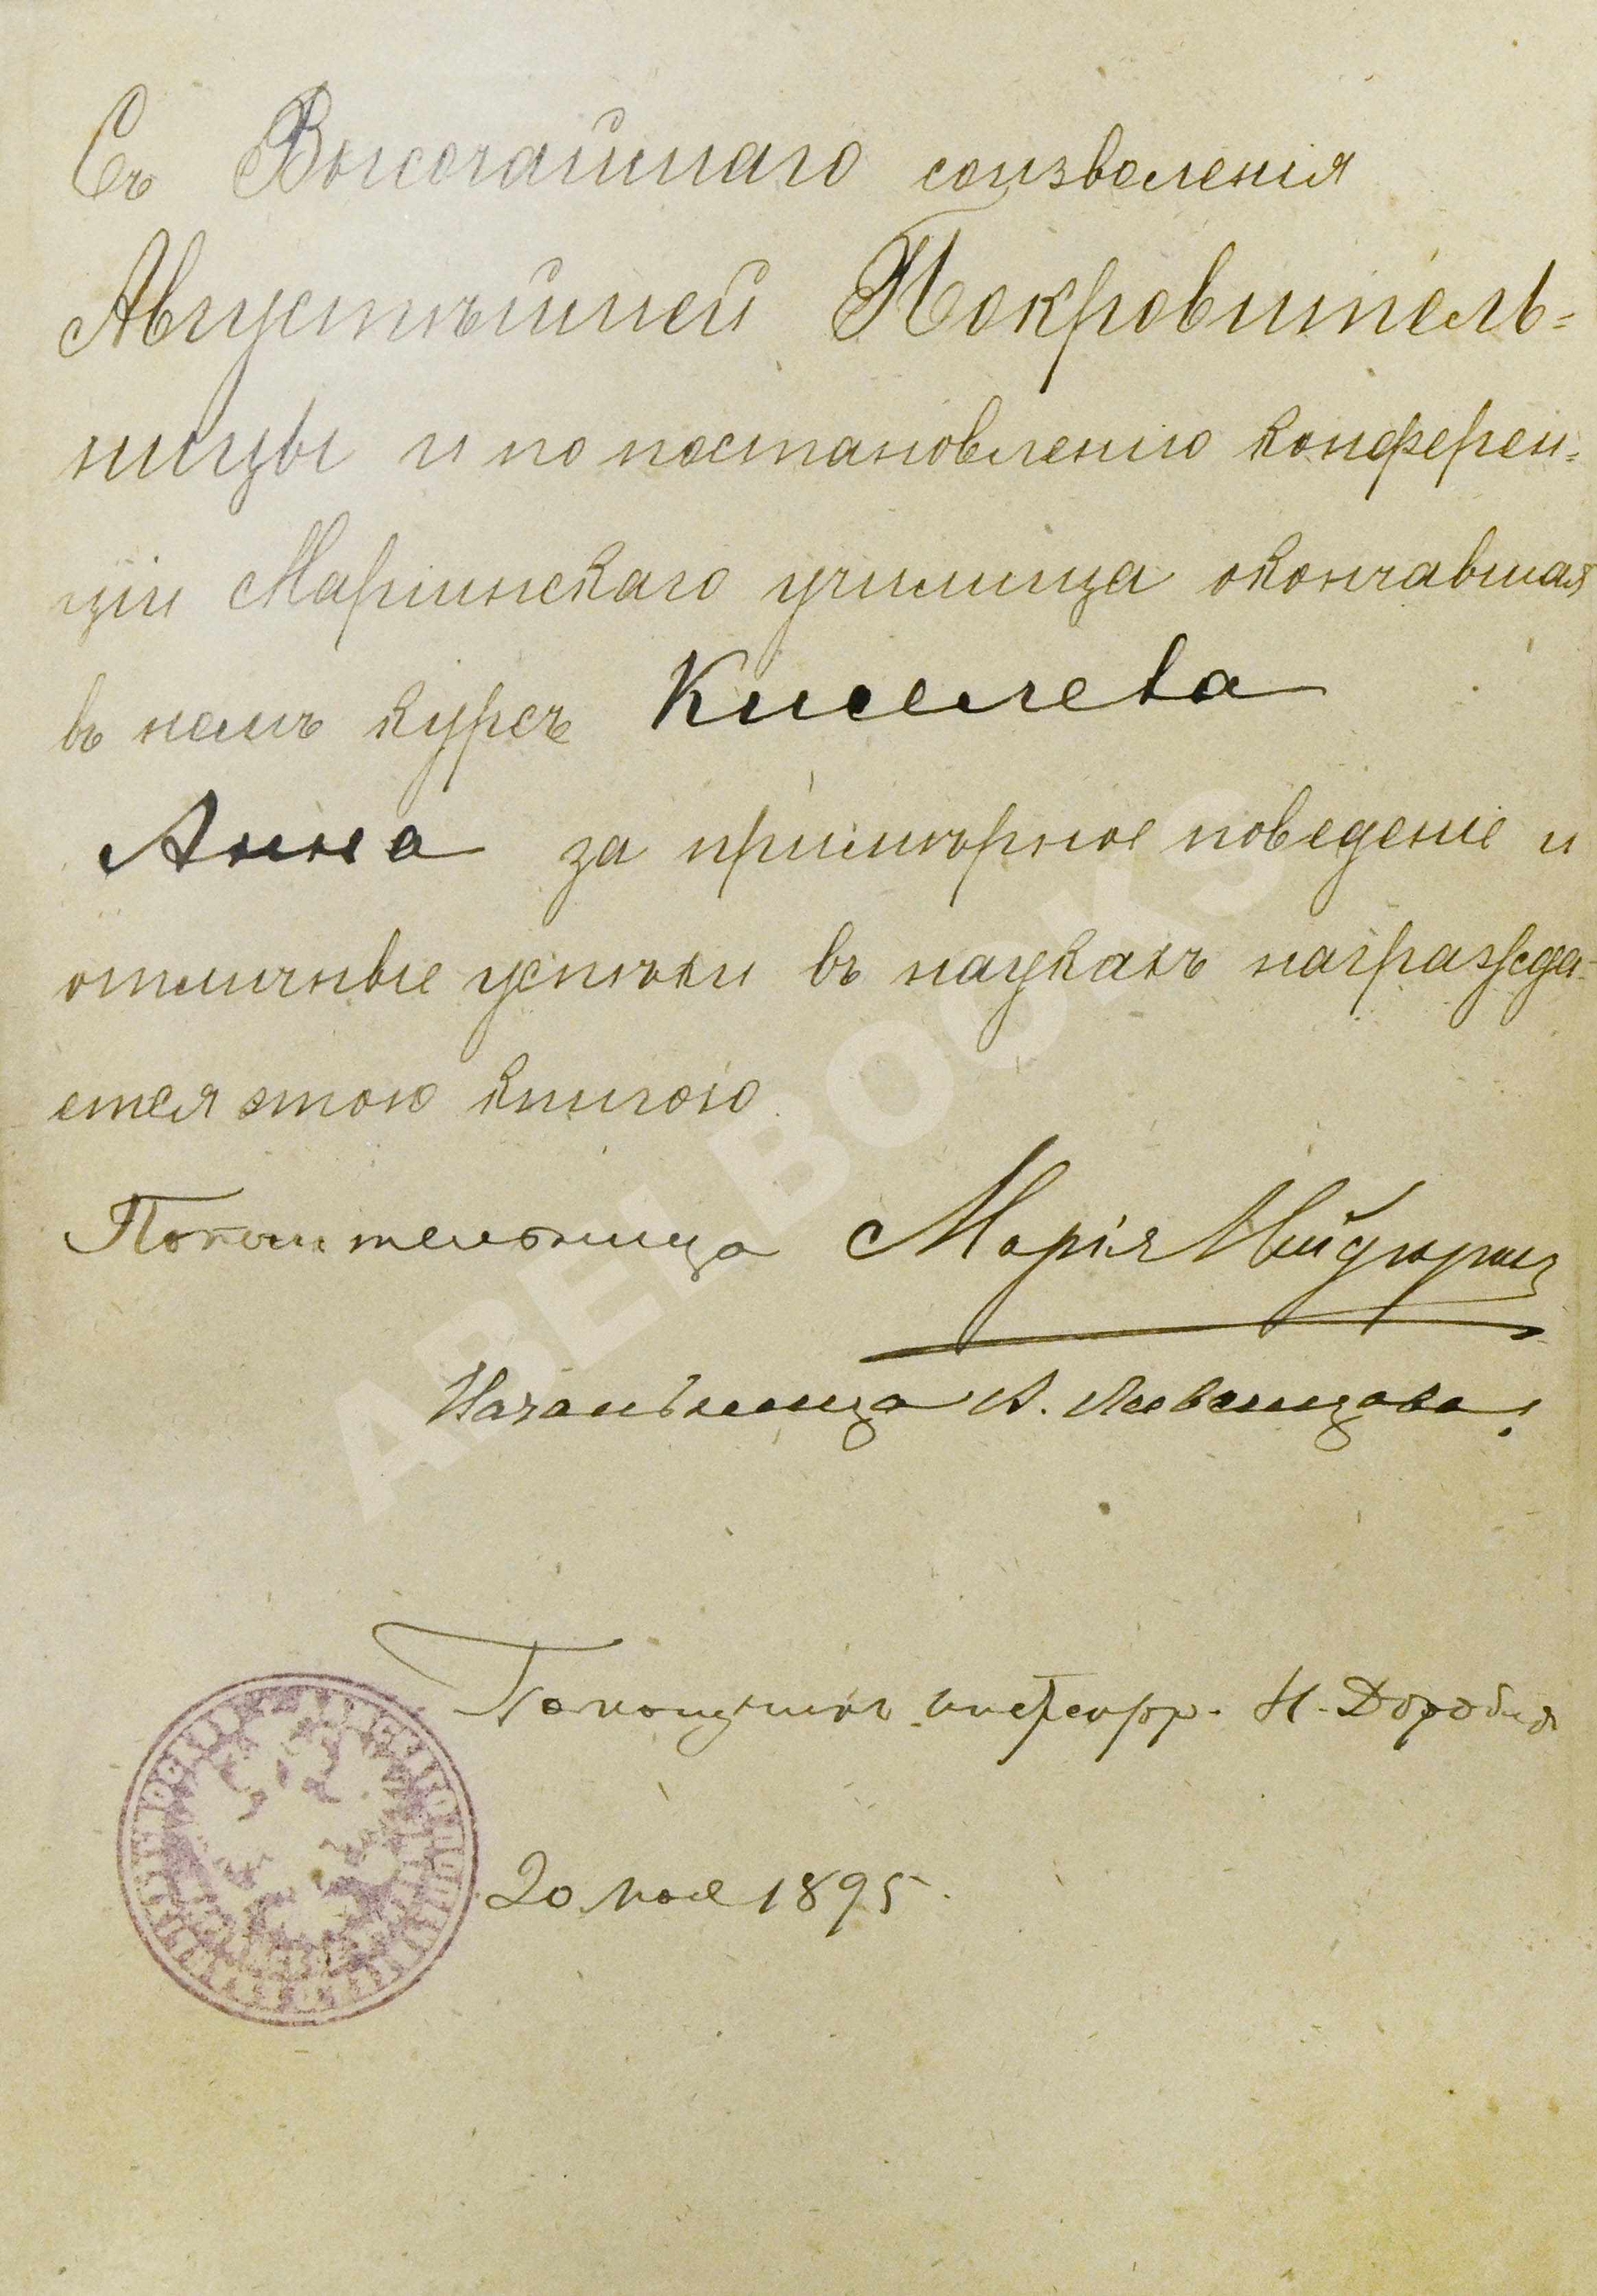 Съ Высочайшаго соизволенія
Августѣйшей Покровитель=
ницы и по постановленію конферен=
ціи Маріинскаго училища окончавшая
въ немъ курсъ Киселева
Анна за примѣрное поведеніе и
отличные успѣхи въ наукахъ награжда-
ется этою книгою.
Попечительница Марія
Начальница А. Ливенцова.
Помощникъ инспектр. Н.
20 мая 1895.
ABELBOOKS